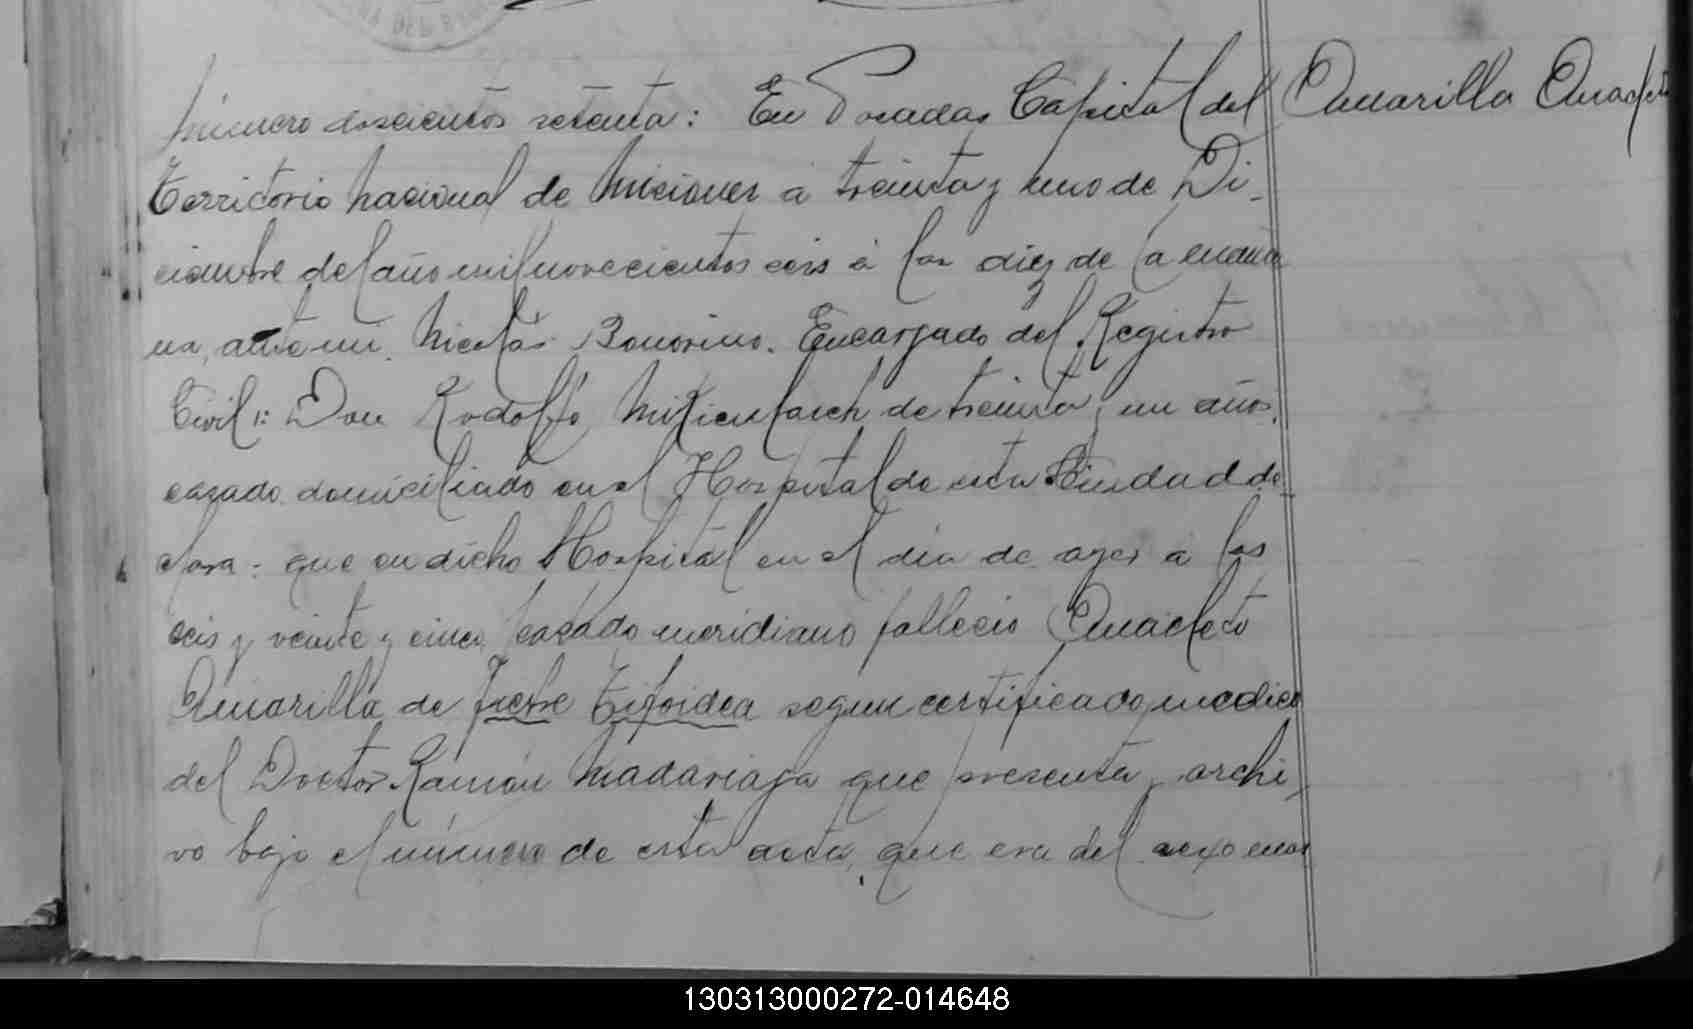 Número doscientos setenta: En Posadas Capital del
Amarilla Anacleto
Territorio Nacional de Misiones a treinta y uno de Di-
ciembre del año mil novecientos seis á las diez de la maña
na, ante mi, Nicolás Bonorino. Encargado del Registro
Civil: Don Rodolfo de treinta y un años,
casado domiciliado en el Hospital de esta Ciudad de-
clara: que en dicho Hospital en el dia de ayer á las
seis y veinte y cinco pasado meridiano fallecio Anacleto
Amarilla de Fiebre Tifoidea segun certificado medico
del Doctor Ramón Madariaga que presenta y archi-
vo bajo el número de esta acta, que era del sexo mas
130313000272-014648